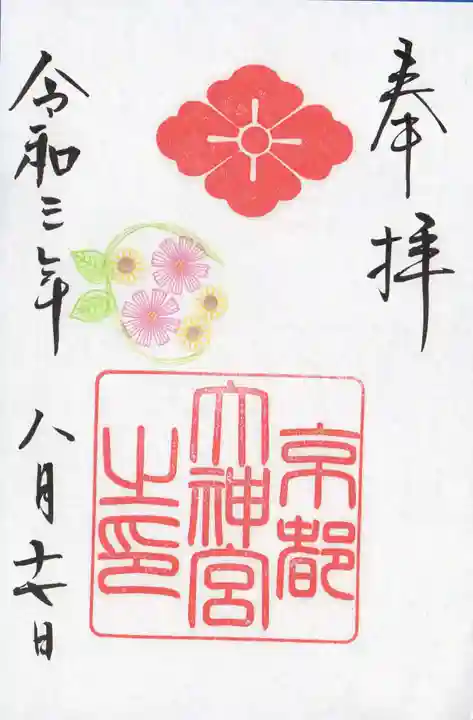 奉拝
京都
大神宮
之印
令和三年
八月十七日